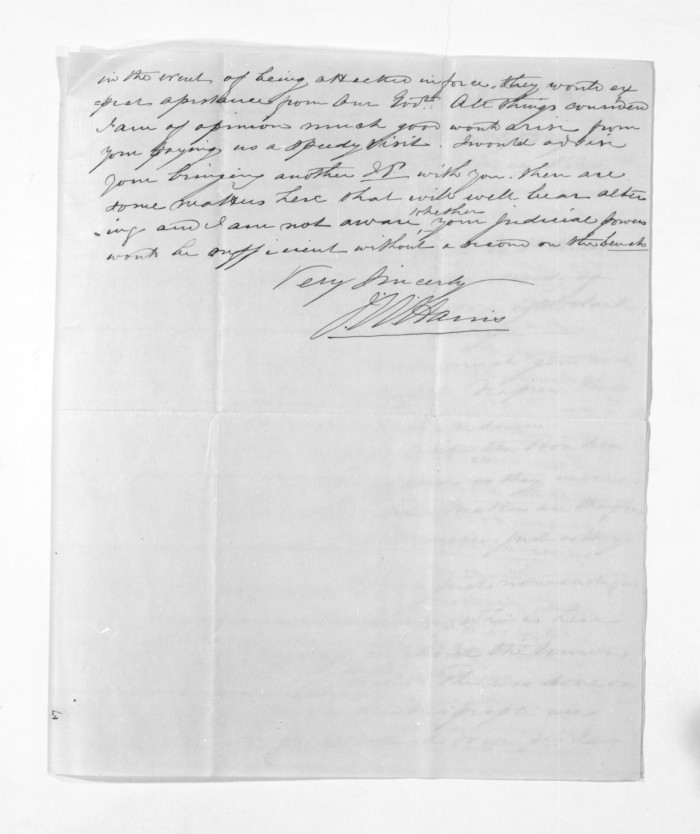 in the event of being attacked in force, they would ex
pect assistance from our Govt. All things considered
I am of opinion much good would arise from
your paying us a speedy visit. I would advise
your bringing another JP with you. There are
some matters here that will well bear alter
-ing and I am not aware whether your Judicial powers
would be sufficient without a second on the bench
Very Sincerly
J. W. Harris